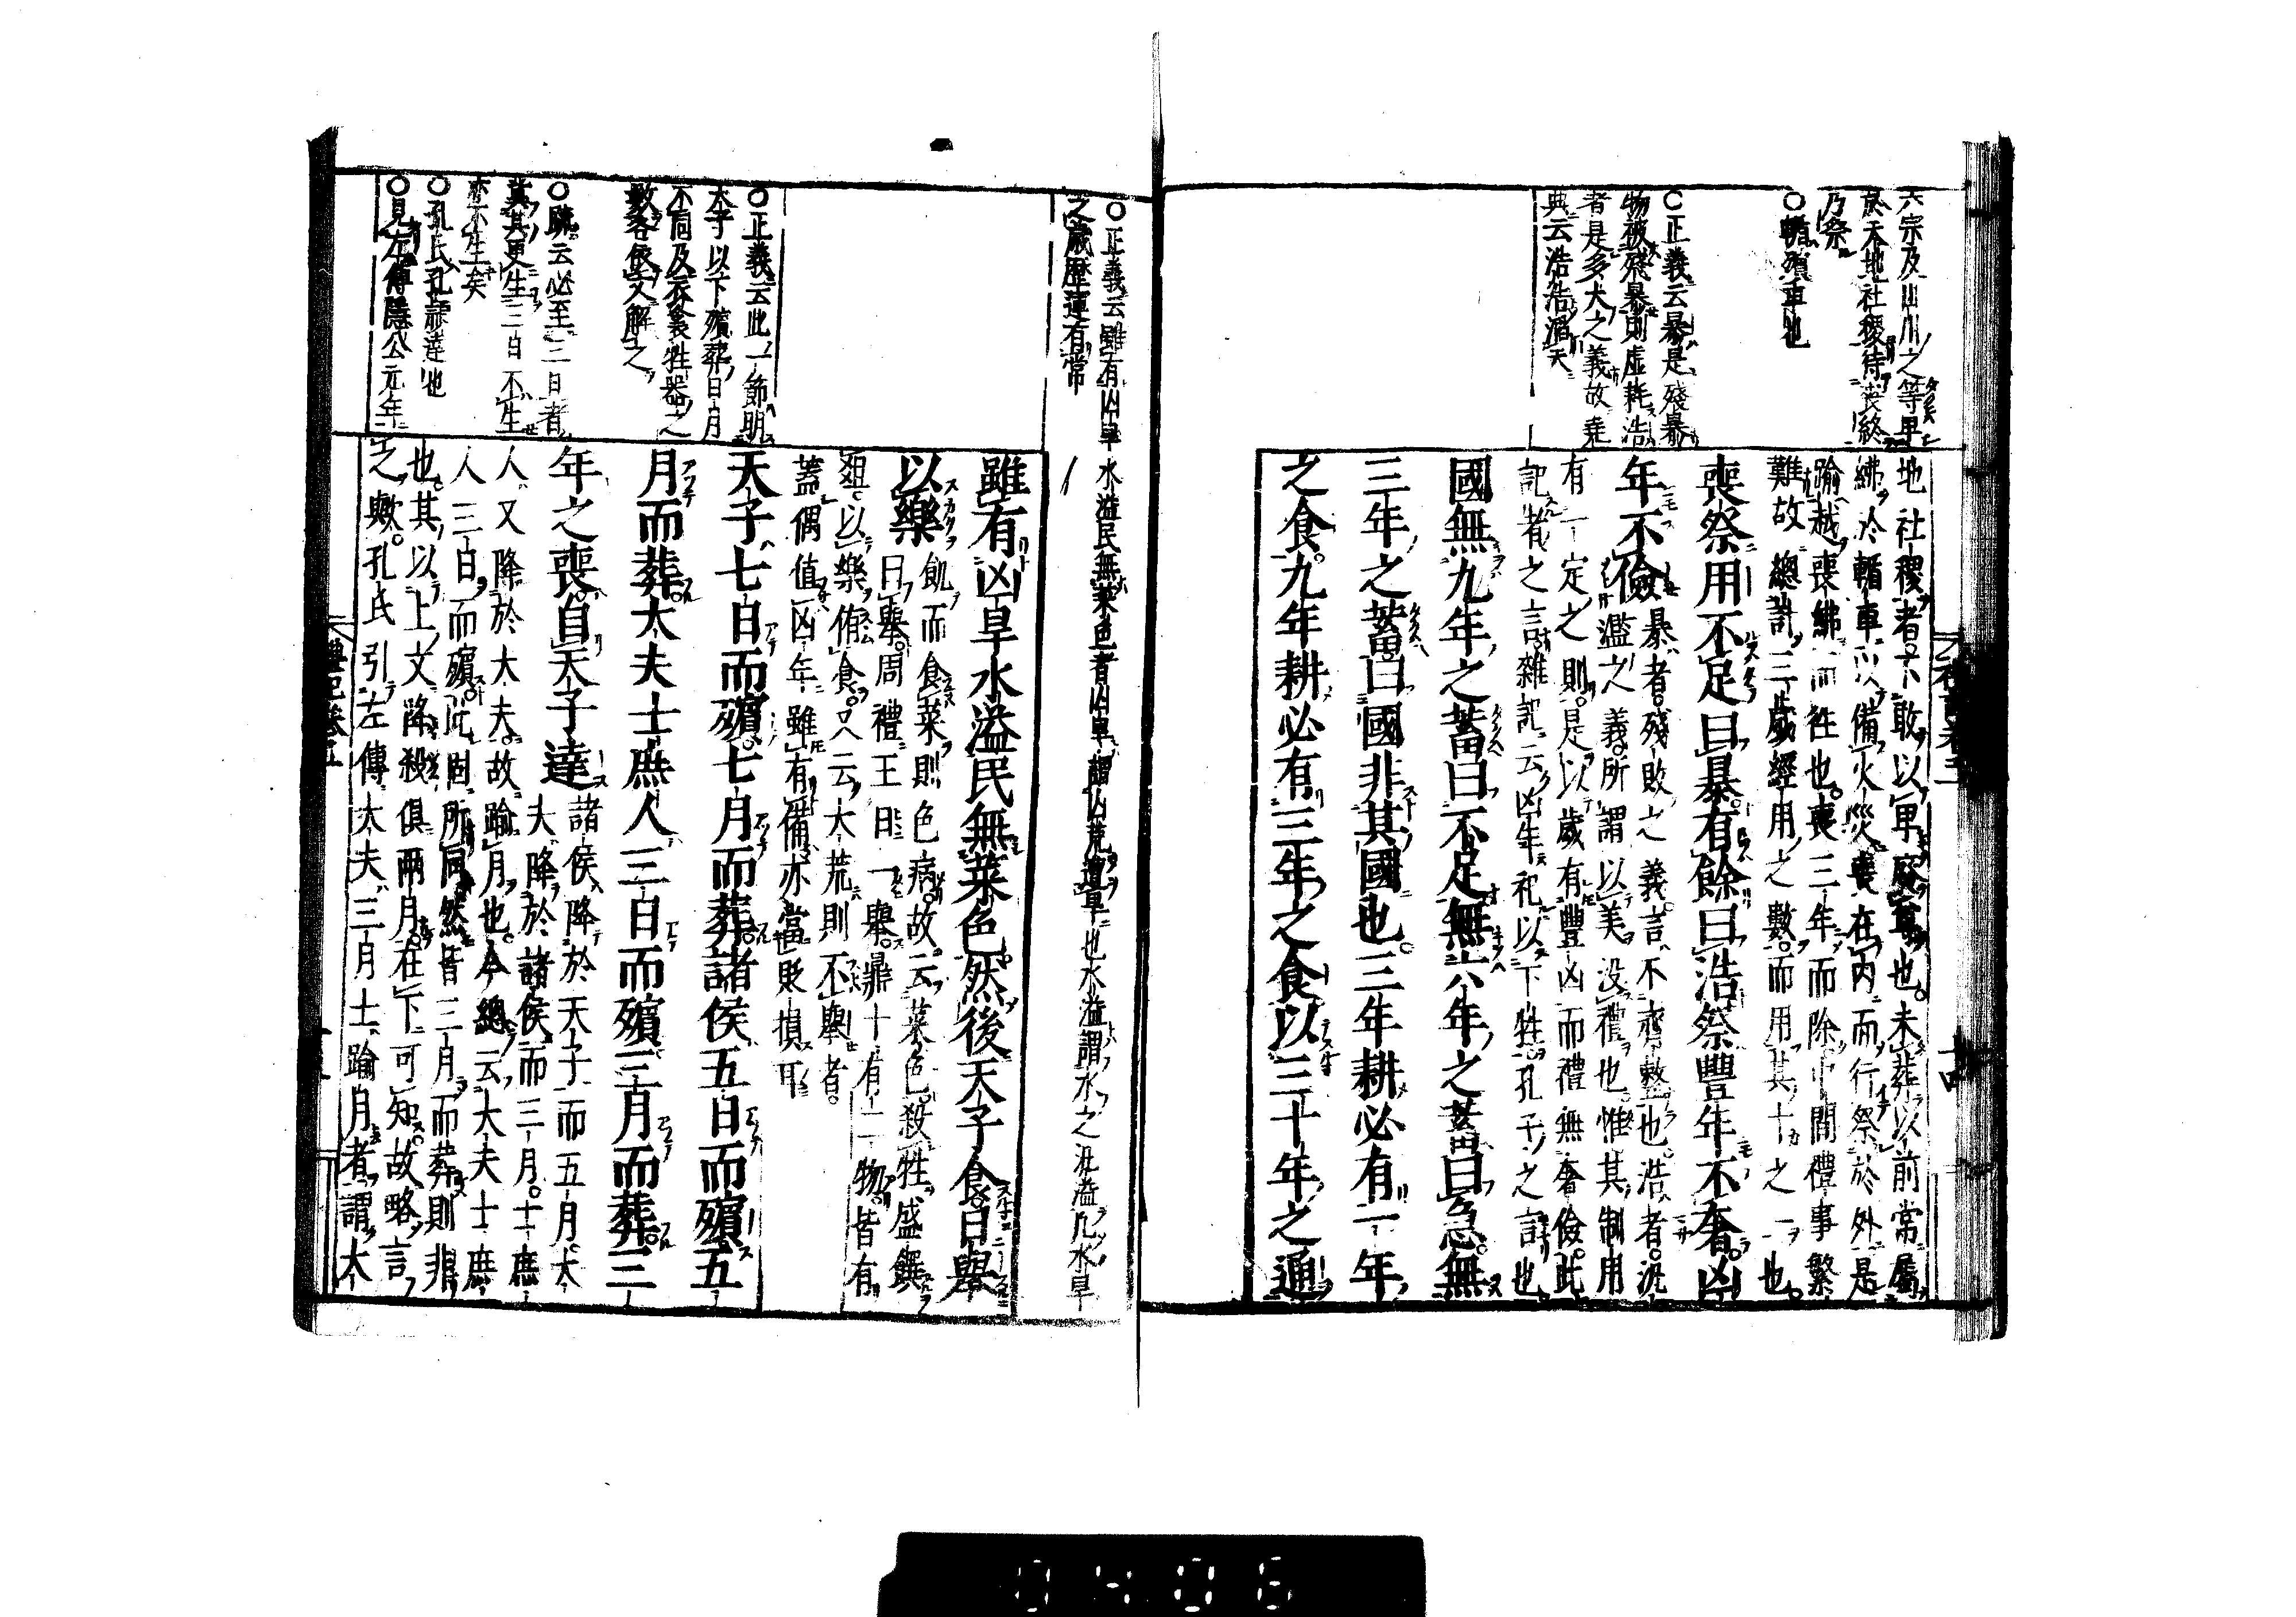 六宗及山川之等卑
於天地社稷待喪終
乃祭
○輴殯車也
○正義云暴是殘暴
物被殘暴則虛耗浩
者是多大之義故堯
典云浩浩滔天
地社稷者不敢以卑廢尊也未葬以前常屬
紼於輴車以備火災喪在內而行祭於外是
踰越喪紼而往也喪三年而除中間禮事繁
難故總計三歲經用之數而用其十之一也
喪祭用不足曰暴有餘曰浩祭豐年不奢凶
年不儉
暴者殘敗之義言不齊整也浩者汎
濫之義所謂以美没禮也惟其制用
有一定之則是以歲有豐凶而禮無奢儉此
記者之言雜記云凶年祀以下牲孔子之言也
國無九年之蓄曰不足無六年之蓄曰急無
三年之蓄曰國非其國也三年耕必有一年
之食九年耕必有三年之食以三十年之通
○正義云雖有凶旱水溢民無菜色者凶旱謂凶荒遭旱也水溢謂水之汎溢凡水旱
之歲歷運有常
雖有凶旱水溢民無菜色然後天子食日舉
以樂
飢而食菜則色病故云菜色殺牲盛饌
曰舉周禮王日一舉鼎十有二物皆有
俎以樂侑食又云大荒則不舉者
蓋偶值凶年雖有備亦當貶損耳
○正義云此一節明
天子以下殯葬日月
不同及衣衾牲器之
數各依文解之
○疏云必至三日者
冀其更生三日不生
亦不生矣
○孔氏孔穎達也
○見左傳隱公元年
天子七日而殯七月而葬諸侯五日而殯五
月而葬大夫士庶人三日而殯三月而葬三
年之喪自天子達
諸侯降於天子而五月大
夫降於諸侯而三月士庶
人又降於大夫故踰月也今總云大夫士庶
人三日而殯此固所同然皆三月而葬則非
也其以上文降殺俱兩月在下可知故略言
之歟孔氏引左傳大夫三月士踰月者謂大